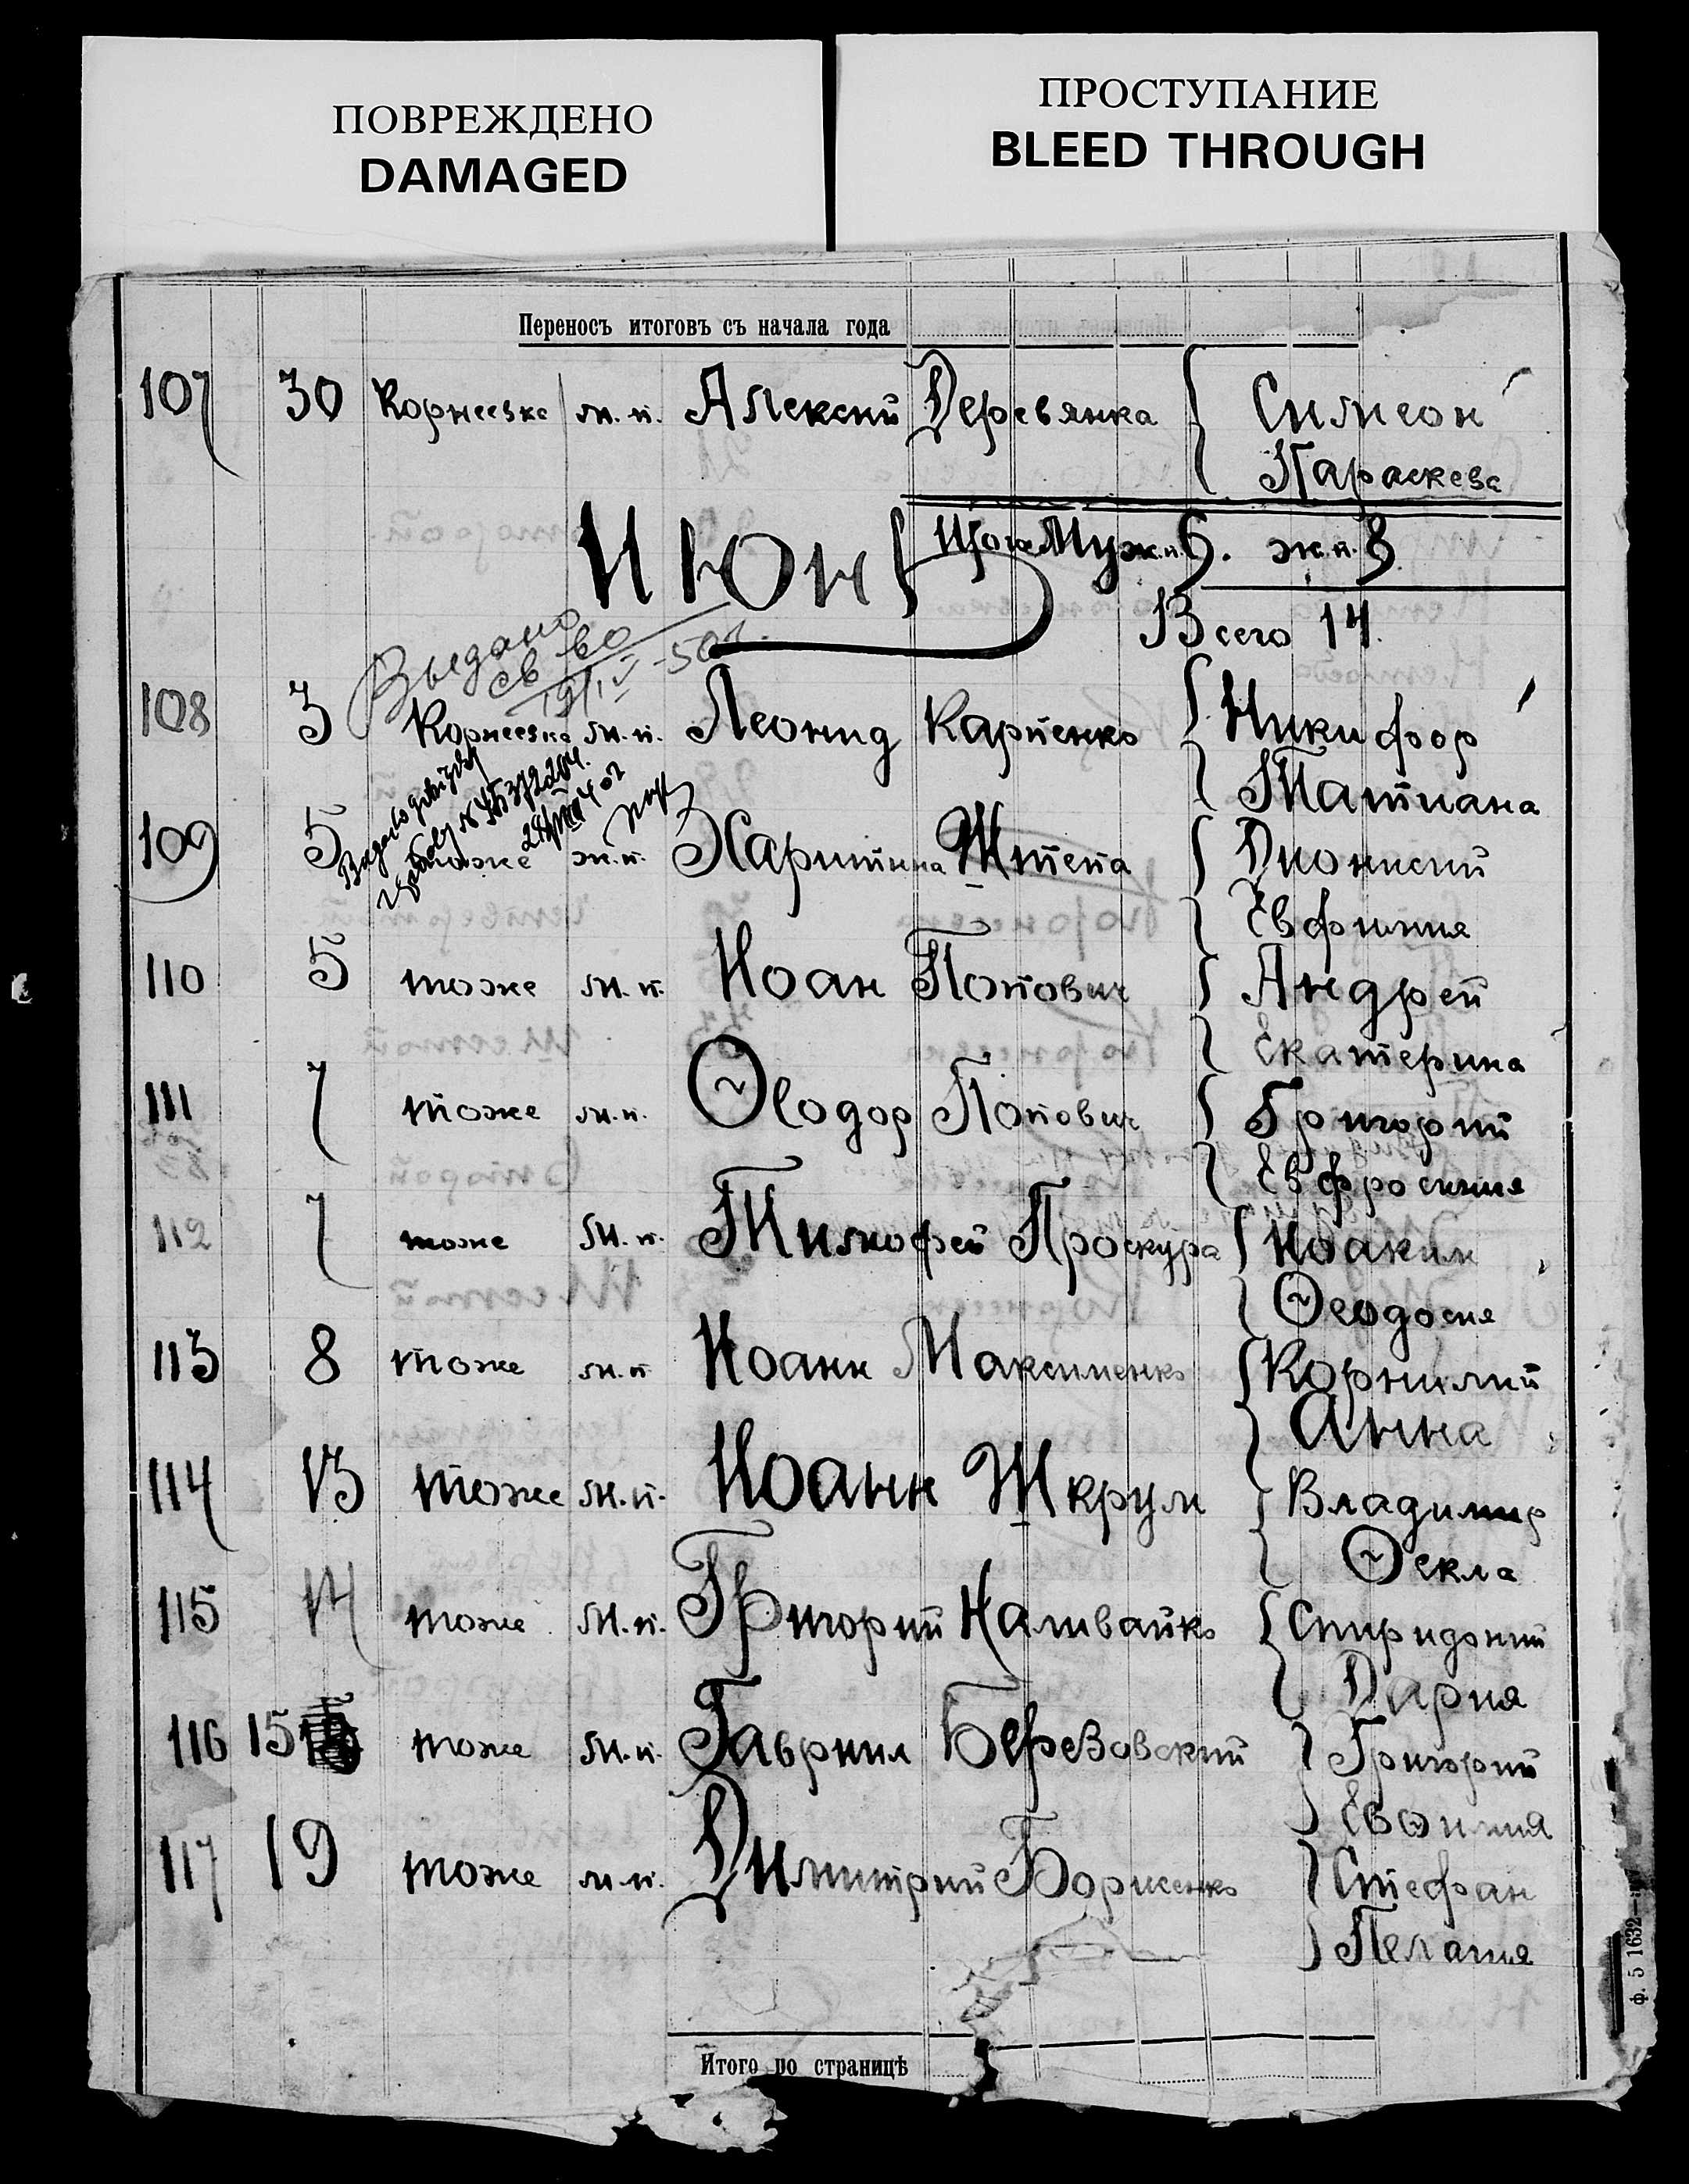 ПОВРЕЖДЕНО
DAMAGED
ПРОСТУПАНИЕ
BLEED THROUGH
Переносъ итоговъ съ начала года
107 30 Корнеевке м.п. Алексий Деревянка Симеон
Параскева
Итого Муж.п. 6. ж.п. 8
Июнь
Всего 14.
Выдано
св во
19/IV-50г.
108 3 Корнеевка м.п. Леонид Карпенко Никифор
Татиана
109 5 тоже ж.п. Харитина Штепа Дионисий
Евфимия
110 5 тоже м.п. Иоан Попович Андрей
Екатерина
111 7 тоже м.п. Ѳеодор Попович Григорий
Евфросиния
112 7 тоже м.п. Тимофей Проскура Иоаким
Ѳеодосия
113 8 тоже м.п. Иоанн Максименко Корнилий
Анна
114 13 тоже м.п. Иоанн Шкрум Владимир
Ѳекла
115 14 тоже м.п. Григорий Наливайко Спиридоний
Дария
116 15 тоже м.п. Гавриил Березовский Григорий
Евѳимия
117 19 тоже м.п. Димитрий Борисенко Стефан
Пелагия
Итого по страницѣ
ф. 5 1632